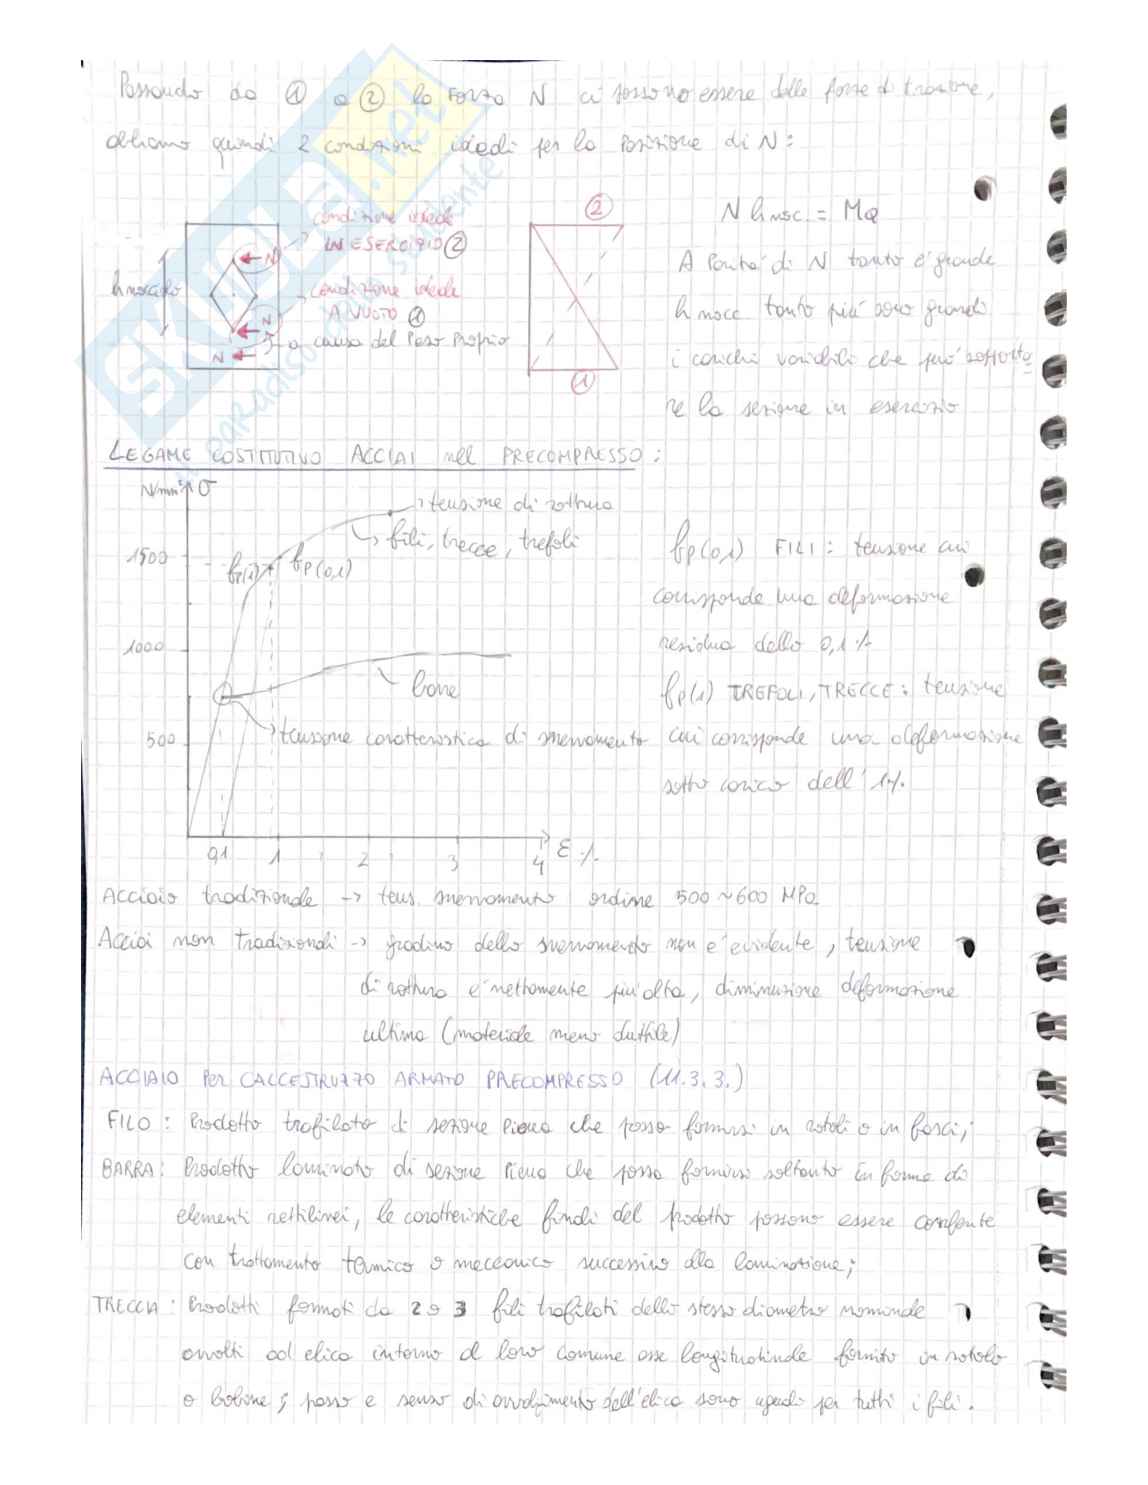 Passando da ① a ② la Forza N ci possono essere delle forze di trazione,
abbiamo quindi 2 condizioni ideali per la posizione di N:
condizione ideale
IN ESERCIZIO ②
N
h nocciolo
condizione ideale
A VUOTO ①
N
a causa del Peso Proprio
N
②
①
N h nocc. = MQ
A Parità di N tanto è grande
h nocc tanto più sono grandi
i carichi variabili che può sopporta
re la sezione in esercizio
LEGAME COSTITUTIVO ACCIAI nel PRECOMPRESSO:
N/mm² σ
tensione di rottura
fili, trecce, trefoli
1500
fp(1) fp(0,1)
1000
barre
tensione caratteristica di snervamento
500
0,1 1 2 3 4 ε %
fp(0,1) FILI: tensione cui
corrisponde una deformazione
residua dello 0,1 %
fp(1) TREFOLI, TRECCE: tensione
cui corrisponde una deformazione
sotto carico dell'1%.
Acciaio tradizionale -> tens. snervamento ordine 500 ~ 600 MPa
Acciai non tradizionali -> gradino dello snervamento non è evidente, tensione
di rottura è nettamente più alta, diminuzione deformazione
ultima (materiale meno duttile)
ACCIAIO PER CALCESTRUZZO ARMATO PRECOMPRESSO (11.3.3.)
FILO: Prodotto trafilato di sezione Piena che possa fornirsi in rotoli o in fasci;
BARRA: Prodotto laminato di sezione Piena che possa fornirsi soltanto in forma di
elementi rettilinei, le caratteristiche finali del prodotto possono essere conferite
con trattamento termico o meccanico successivo alla laminazione;
TRECCIA: Prodotti formati da 2 o 3 fili trafilati dello stesso diametro nominale
avvolti ad elica intorno al loro comune asse longitudinale fornito in rotolo
o bobine; passo e senso di avvolgimento dell'elica sono uguali per tutti i fili.
SKUOLA.net
il paradiso dello studente